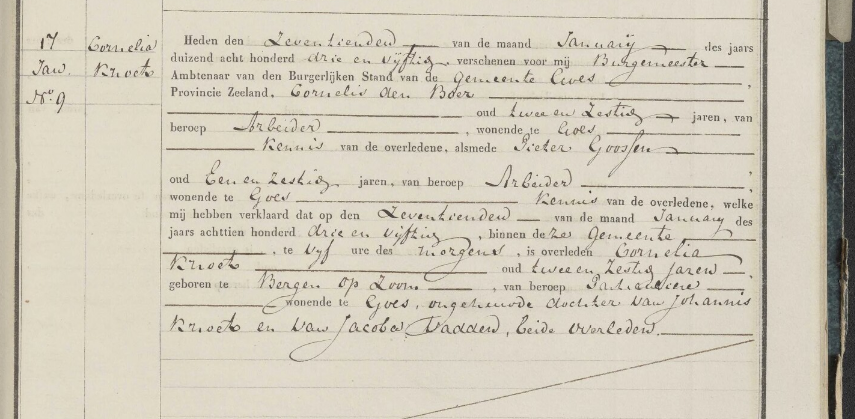 17 Cornelia
Jan. Knoek
No. 9
Heden den Zeventienden van de maand January des jaars
duizend acht honderd drie en vijftig verschenen voor mij Burgemeester
Ambtenaar van den Burgerlijken Stand van de Gemeente Goes,
Provincie Zeeland, Cornelis den Boer
oud twee en Zestig jaren, van
beroep Arbeider, wonende te Goes
Kennis van de overledene, alsmede Pieter Goossen
oud Een en Zestig jaren, van beroep Arbeider,
wonende te Goes Kennis van de overledene, welke
mij hebben verklaard dat op den Zeventienden van de maand January des
jaars achttien honderd drie en vijftig, binnen deze Gemeente
, te vyf ure des morgens, is overleden Cornelia
Knoek oud twee en Zestig Jaren,
geboren te Bergen op Zoom, van beroep
wonende te Goes, ongehuwde dochter van Johannis
Knoek en van Jacoba Vadden, beide overleden.